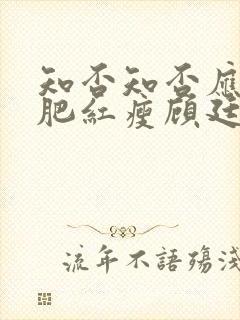 知否知否應
肥紅瘦顧廷
流年不語殤淺